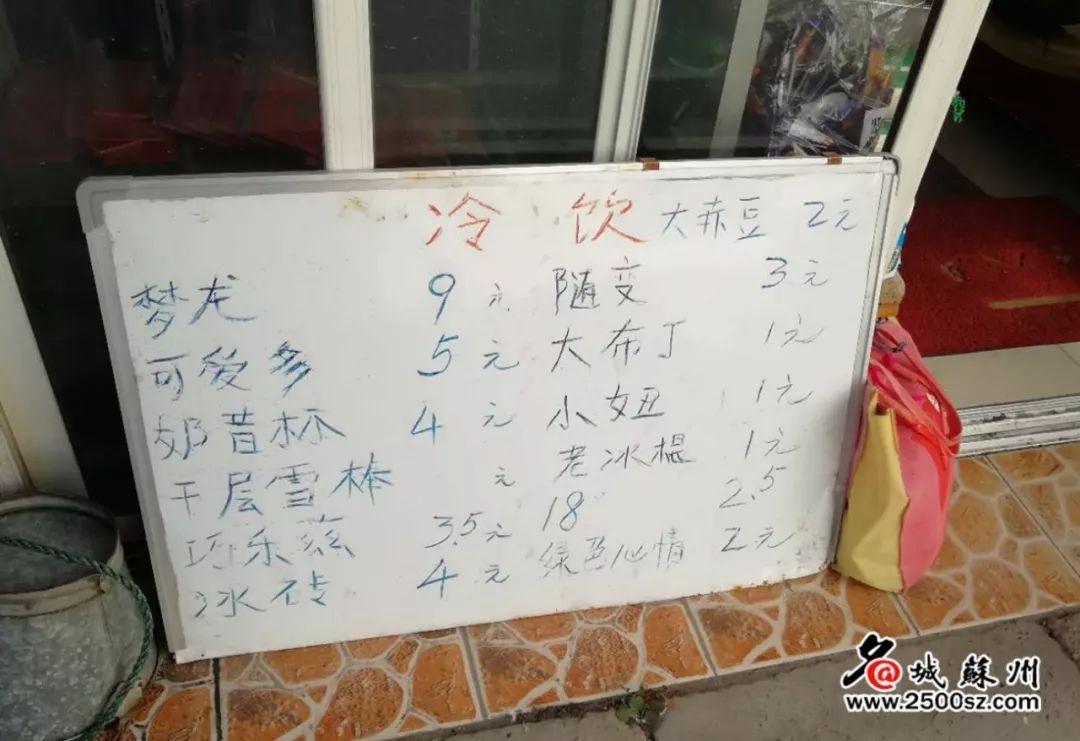 冷 饮 大赤豆 2元
梦龙 9元 随变 3元
可爱多 5元 大布丁 1元
奶昔杯 4元 小妞 1元
千层雪棒 元 老冰棍 1元
巧乐兹 3.5元 18° 2.5
冰砖 4元 绿色心情 2元
名@城蘇州
www.2500sz.com